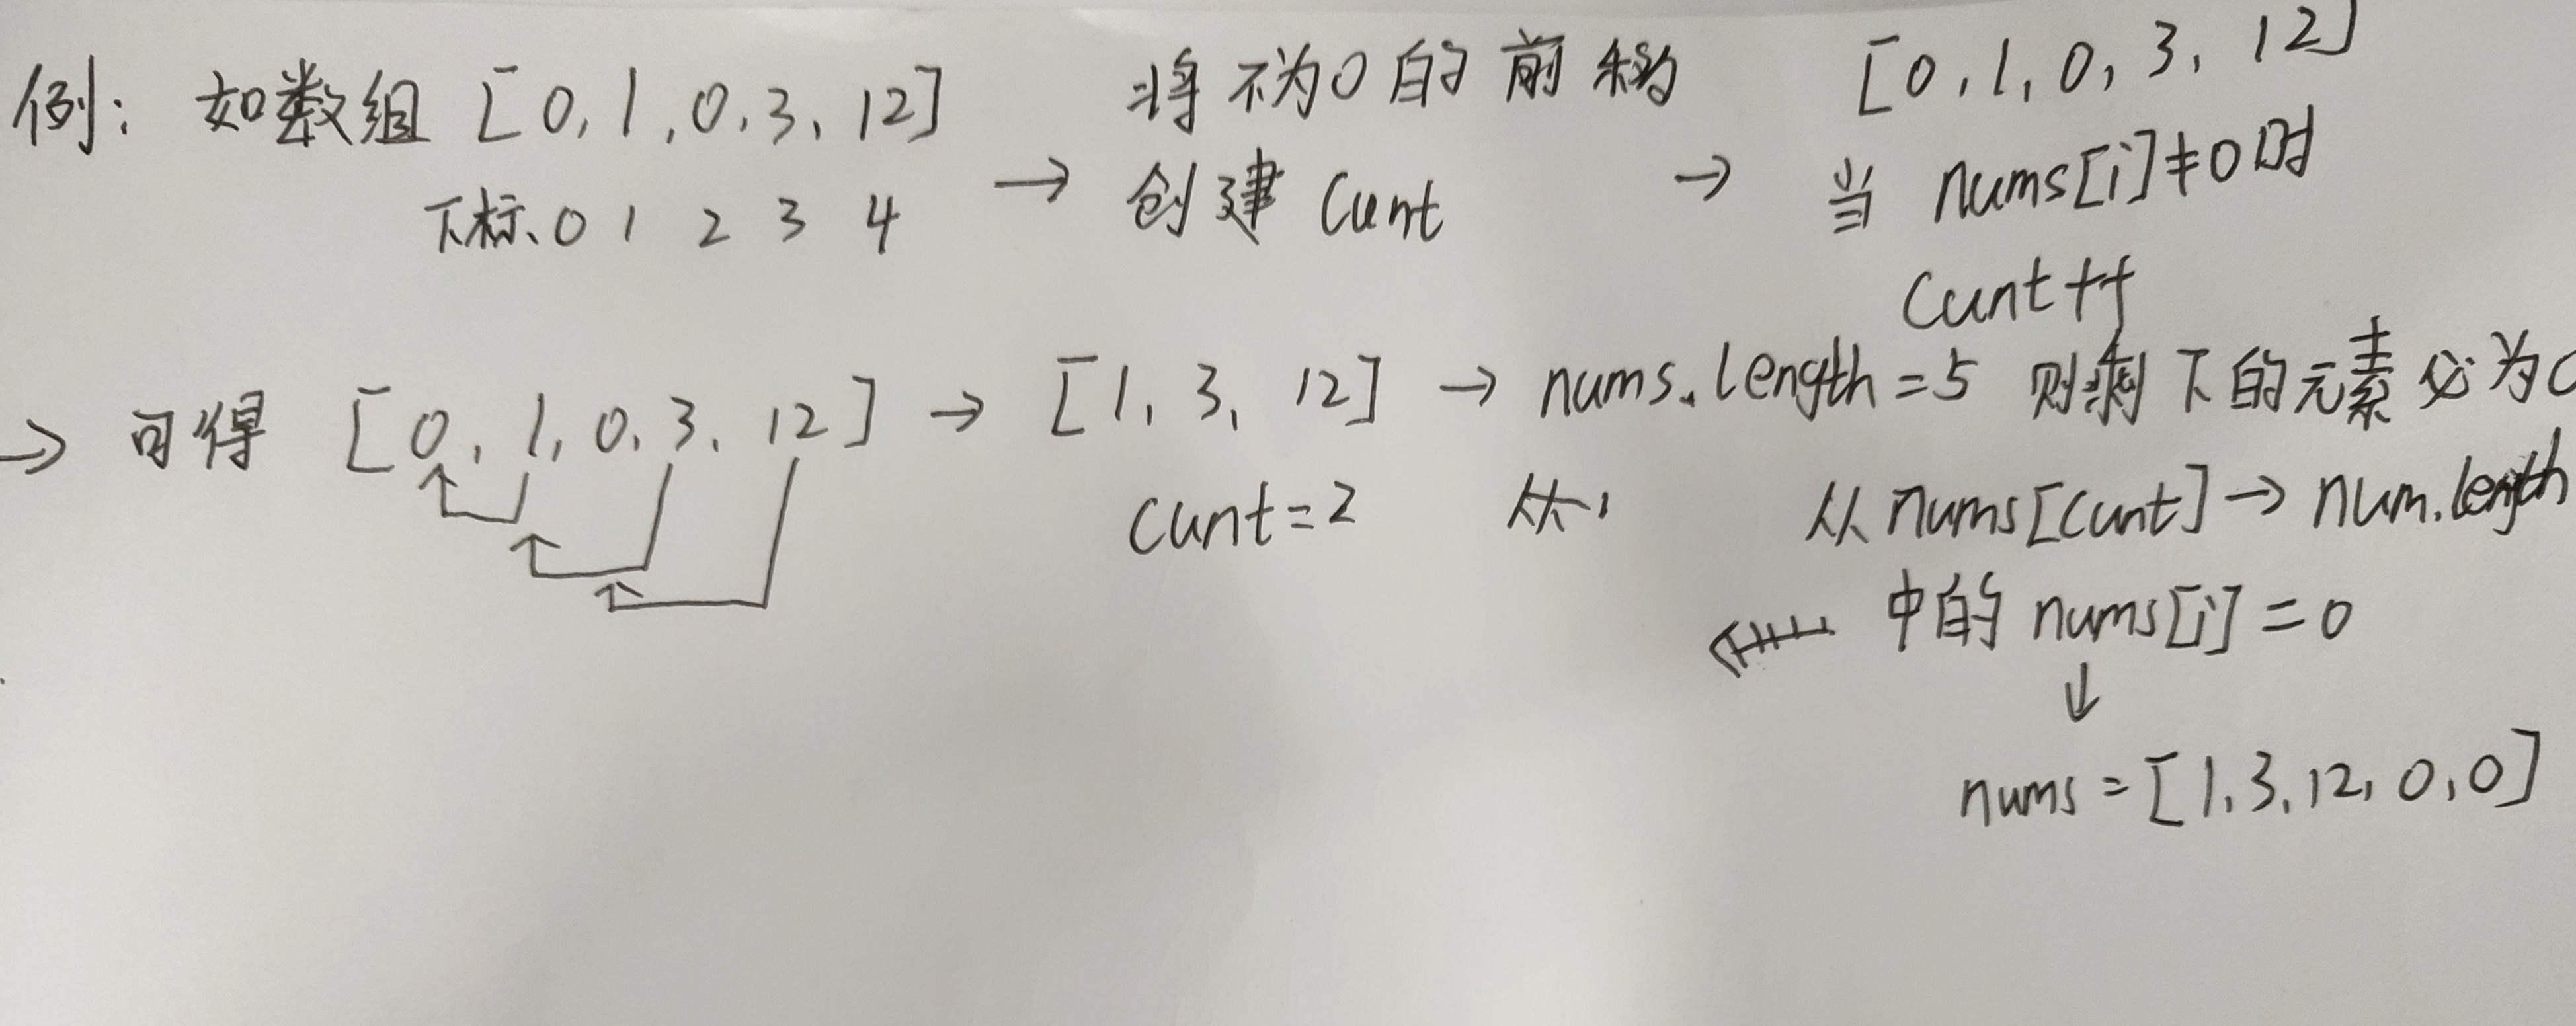 例：如数组 [0,1,0,3,12]
下标、0 1 2 3 4
→ 将不为0的前移
创建 Cunt
→ [0,1,0,3,12]
当 nums[i]≠0时
Cunt++
→ 可得 [0,1,0,3,12] → [1,3,12] → nums.length=5 则剩下的元素必为0
cunt=2
从nums[cunt]→num.length
中的 nums[i]=0
↓
nums=[1,3,12,0,0]